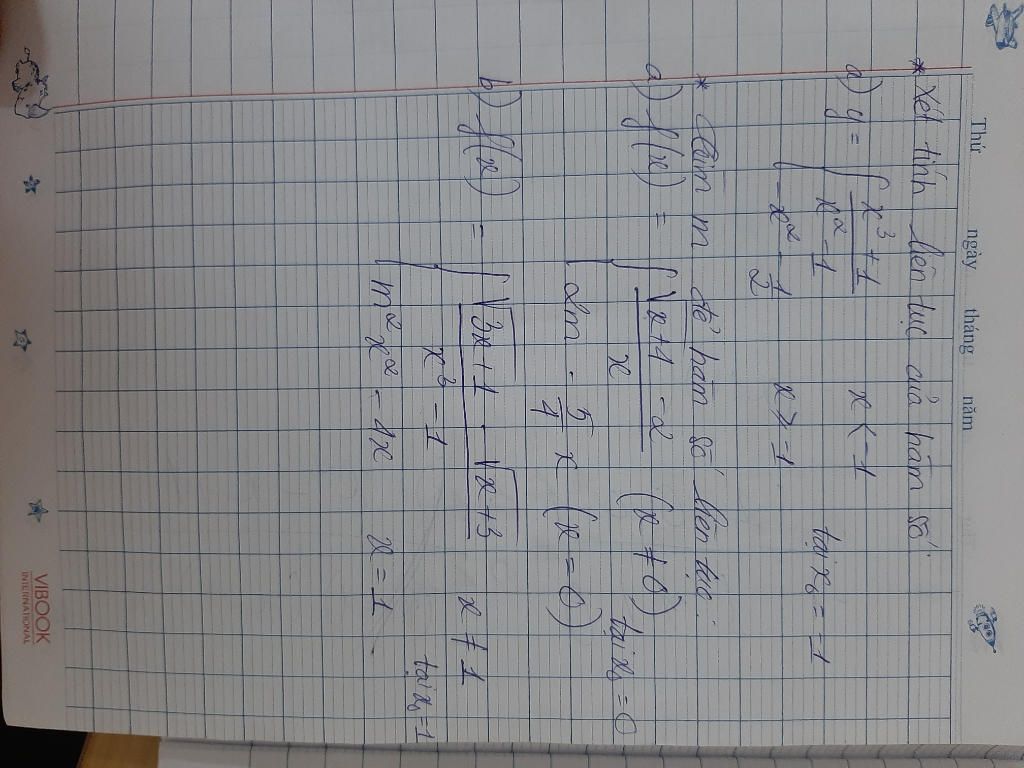 Thứ ngày tháng năm
* Xét tính liên tục của hàm số:
a) y = { (x³ + 1)/(x² - 1) x < -1
-x² - 1/2 x ≥ -1 tại x₀ = -1
* Tìm m để hàm số liên tục:
a) f(x) = { (√(x+4) - 2)/x (x ≠ 0)
2m - 5/4 x (x = 0) tại x₀ = 0
b) f(x) = { (√(3x+1) - √(x+3))/(x³ - 1) x ≠ 1
m²x² - 4x x = 1 tại x₀ = 1
VIBOOK
INTERNATIONAL